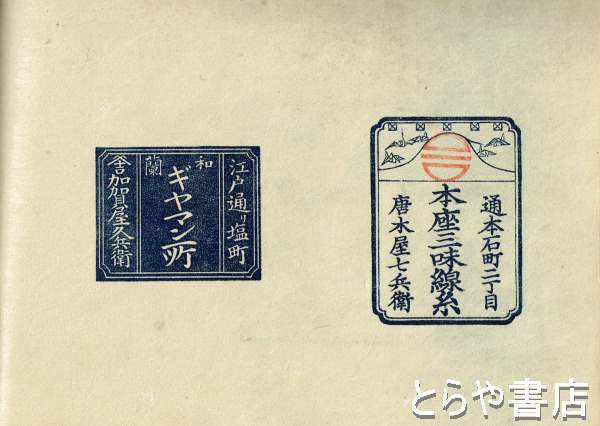 通本石町二丁目
本座三味線糸
唐木屋七兵衛
江戸通り塩町
和蘭
ギヤマン所
加賀屋久兵衛
とらや書店